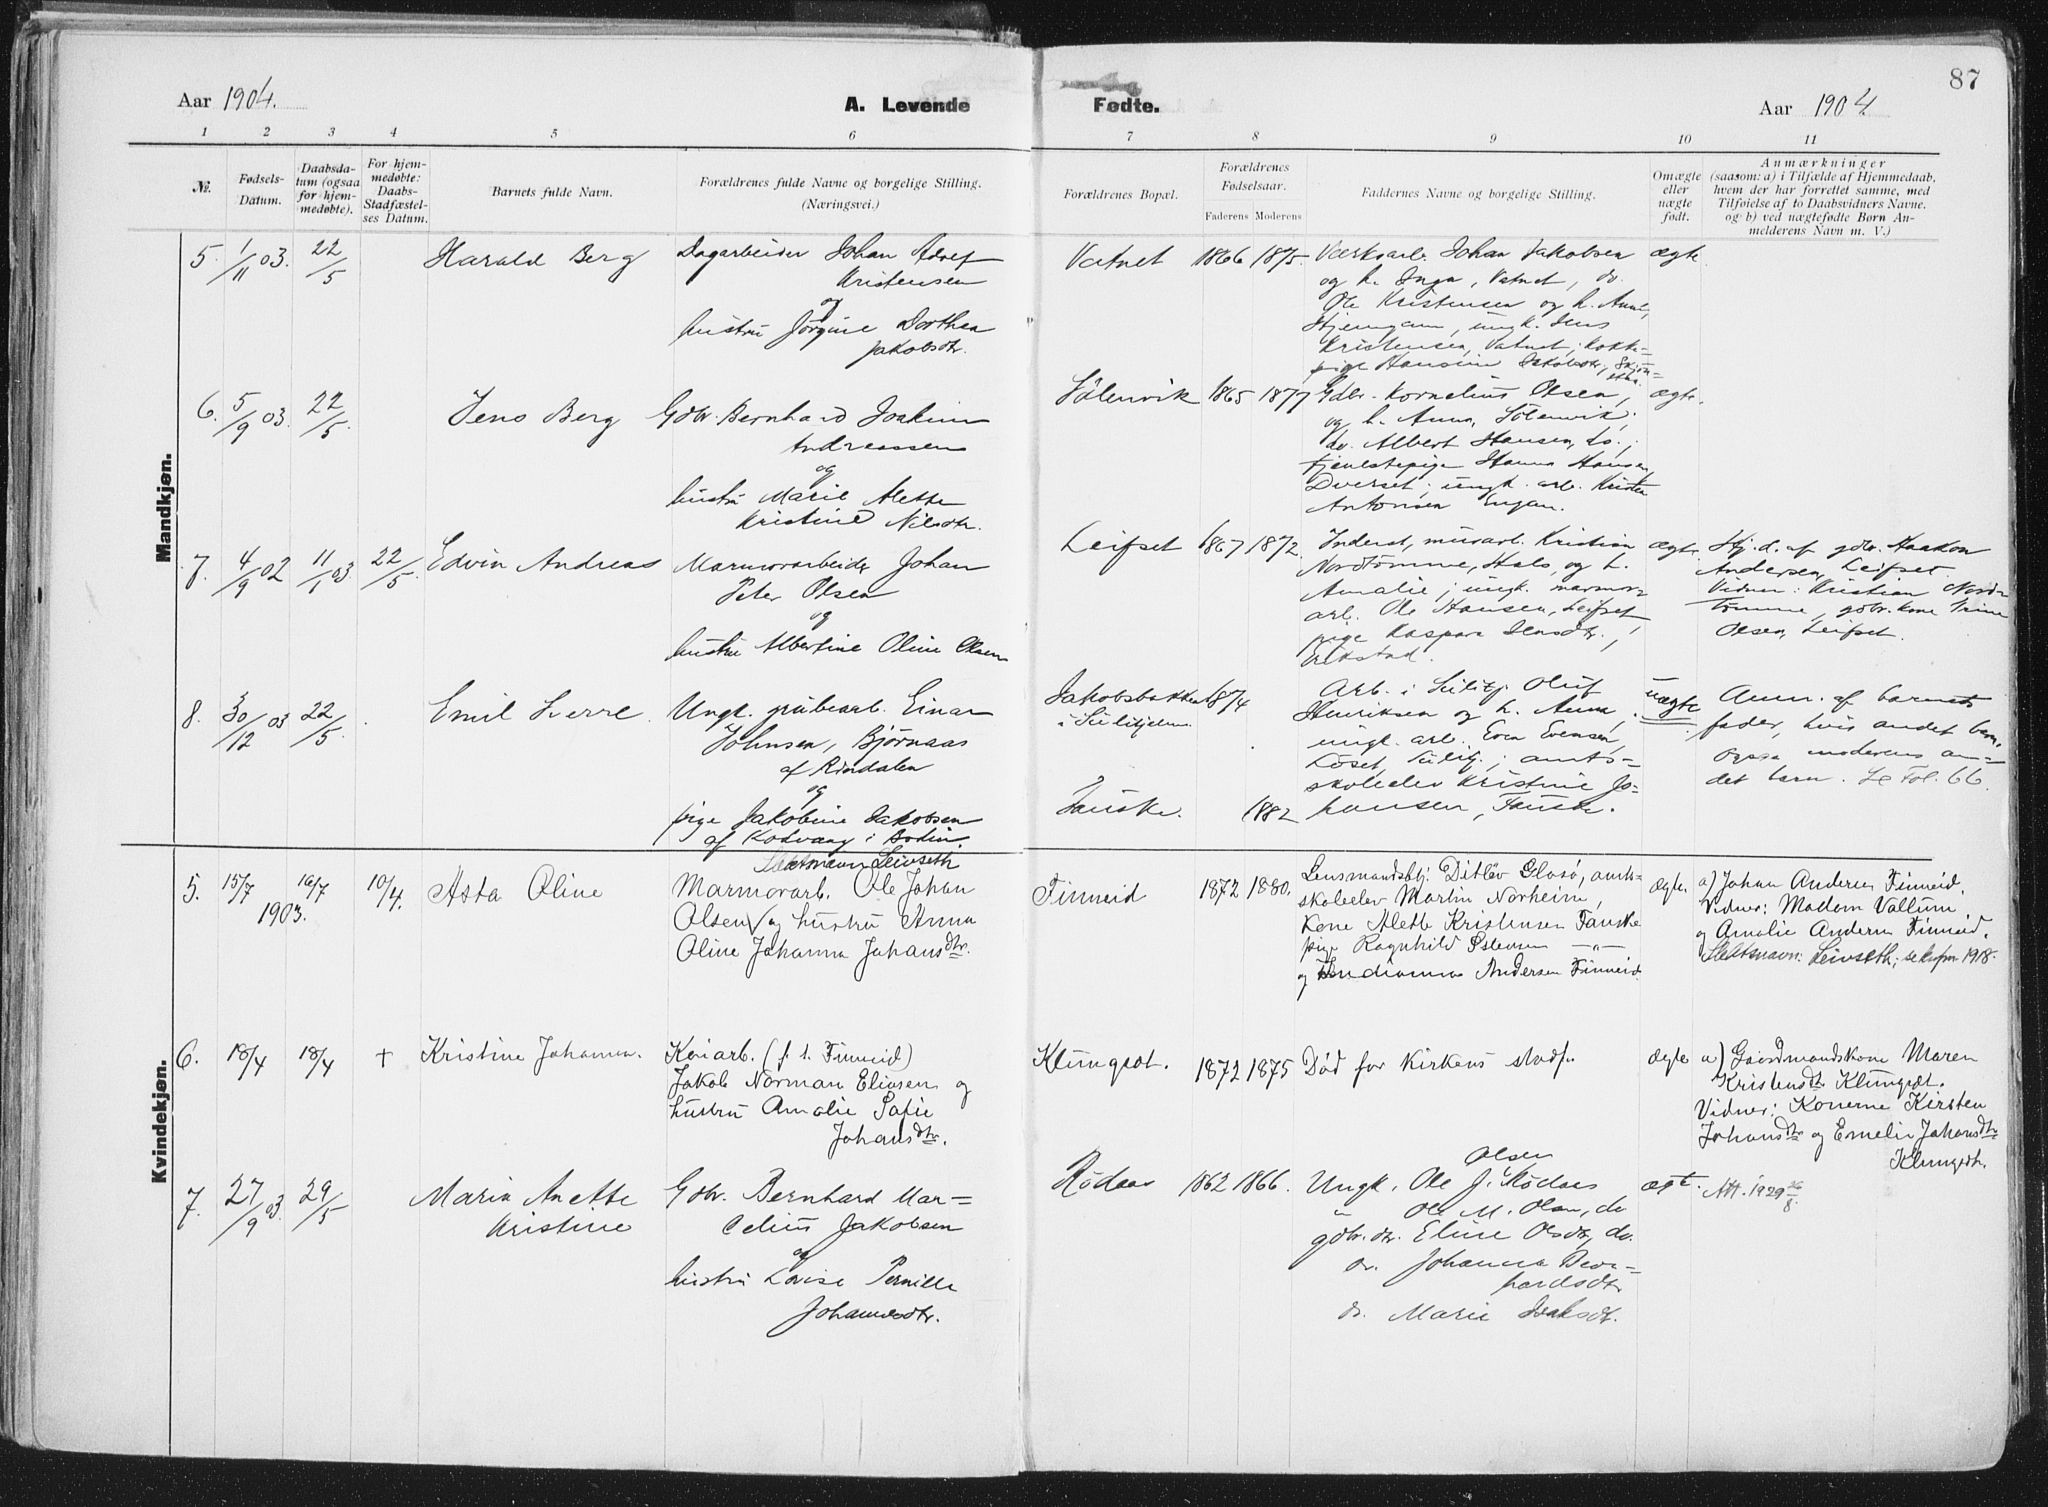 87
Aar 1904.
A. Levende Fødte.
Aar 1904
1 2 3 4 5 6 7 8 9 10 11
№.
Fødsels-
Datum.
Daabsda-
tum (ogsaa
for hjem-
medøbte).
For hjem-
medøbte:
Daabs-
Stadfæstel-
ses Datum.
Barnets fulde Navn.
Forældrenes fulde Navne og borgelige Stilling.
(Næringsvei.)
Forældrenes Bopæl.
Forældrenes
Fødselsaar.
Faderens Moderens
Faddernes Navne og borgelige Stilling.
Omægte
eller
uægte
født.
Anmærkninger
(saasom: a) i Tilfælde af Hjemmedaab.
hvem der har forrettet samme, med
Tilføielse af to Daabsvidners Navne.
og b) ved uægtefødte Børn An-
melderens Navn m. V.)
Mandkjøn.
5. 1/11 03. 22/5 Harald Berg
Dagarbeider Johan Adolf
Kristensen
og
hustru Jörgine Dorthea
Jakobsdtr.
Vatnet 1866 1875.
Værksarb. Johan Jakobsen
og h. Inga, Vatnet, do.
Ole Kristensen og h. Anne,
ungk. Jens
Kristensen, Vatnet; kokke-
pige Hansine Jakobsdtr,
ægte
6. 5/9 03. 22/5. Jens Berg
Gdbr. Bernhard Joakim
Andreassen
og
hustru Marie Alette
Kristine Nilsdtr.
Sölenvik 1865 1877
Gdbr. Kornelius Olsen,
og h. Anna, Sölenvik;
do. Albert Hansen, do.;
tjenestepige Hanna Hansen,
Dverset; ungk. arb. Krist
Antonsen Engan.
ægte.
7. 4/9 02 11/1 03. 22/5. Edvin Andreas
Marmorarbeider Johan
Peter Olsen
og
hustru Albertine Oline Olsen
Leifset 1867 1872.
Inderst, murarb. Kristian
Nordtömme, Hals, og h.
Amalie; ungk. marmor-
arb. Ole Hansen, Leifset,
pige Kaspara Jensdtr.,
Erikstad.
ægte.
Hj. d. af gdbr. Haakon
Andersen, Leifset.
Vidner: Kristian Nord-
tömme, gdbr. kone Trine
Olsen, Leifset.
8. 30/12 03 22/5. Emil Sverre.
Ungk. grubearb. Einar
Johnsen, Bjørnaas
af Rindalen
og
pige Jakobine Jakobsen
af Kodvaag i Bodin.
Jakobsbakken 1874
i Sulitjelma
Fauske. 1882
Arb. i Sulitj. Oluf
Henriksen og h. Anna,
ungk. arb. Even Evensen,
Löset, Sulitj.; amts-
skoleelev Kristine Jo-
hansen, Fauske.
uægte
Anm. af barnets
fader, hvis andet barn,
ogsaa moderens an-
det barn. Se Fol. 66
Kvindekjøn.
Slektsnavn Leivseth
5. 15/7 16/7 1903. 10/4. Asta Oline
Marmorarb. Ole Johan
Olsen og hustru Anna
Oline Johanna Johansdtr.
Finneid 1872 1880.
Lensmandsbtj. Ditlev Glosö, amts-
skoleelev Martin Norheim,
Kone Aleth Kristensen Fauske
pige Ragnhild Istensen — „ —
og Indianna Andersen Finneid.
ægte.
a) Johan Andersen Finneid.
Vidner: Madam Vallum
og Amalie Andersen Finneid.
Slektsnavn: Leivseth; se kopn 1918.
6. 18/4 18/4 + Kristine Johanna.
Kaiarb. (f. t. Finneid)
Jakob Norman Eliasen og
hustru Amalie Sofie
Johansdtr.
Klungset. 1872 1875
Död for kirkens stadf.
ægte
a) Gaardmandskone Maren
Kristensdtr Klungset.
Vidner: Konerne Kirsten
Johansdtr og Emelie Johansdtr
Klungseth.
7. 27/9 03. 29/5 Maria Anette
Kristine
Gdbr. Bernhard Mar-
celius Jakobsen
og
hustru Lovise Pernille
Johannesdtr.
Rödaas 1862 1866.
Olsen
Ungk. Ole J. Rödaas
Ole M. Olsen, do
gdbr. dtr. Eline Olsdtr, do.
do. Johanna Bern-
hardsdtr
do. Marie Isaksdtr.
ægte.
Att. 1929 26/8.